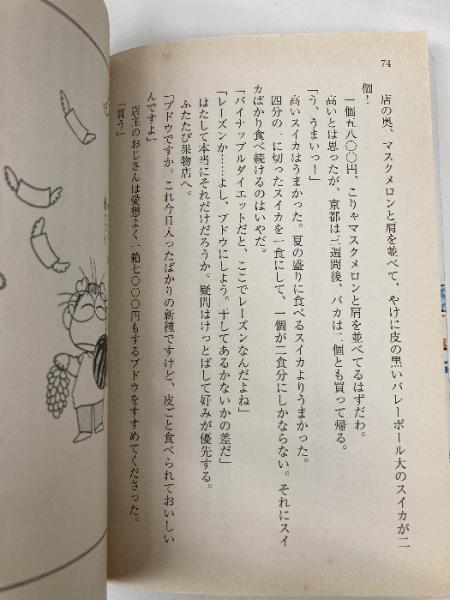 74
店の奥、マスクメロンと肩を並べて、やけに皮の黒いバレーボール大のスイカが二
個!
一個五八〇〇円、こりゃマスクメロンと肩を並べてるはずだわ。
高いとは思ったが、京都は三週間後、バカは二個とも買って帰る。
「う、うまいっ!」
高いスイカはうまかった。夏の盛りに食べるスイカよりうまかった。
四分の一に切ったスイカを一食にして、一個が二食分にしかならない。それにスイ
カばかり食べ続けるのはいやだ。
「パイナップルダイエットだと、ここでレーズンなんだよね」
「レーズンか……よし、ブドウにしよう。干してあるかないかの差だ」
はたして本当にそれだけだろうか。疑問はけっとばして好みが優先する。
ふたたび果物店へ。
「ブドウですか。これ今日入ったばかりの新種ですけど、皮ごと食べられておいしい
んですよ」
店主のおじさんは愛想よく一箱七〇〇〇円もするブドウをすすめてくださった。
「買う」